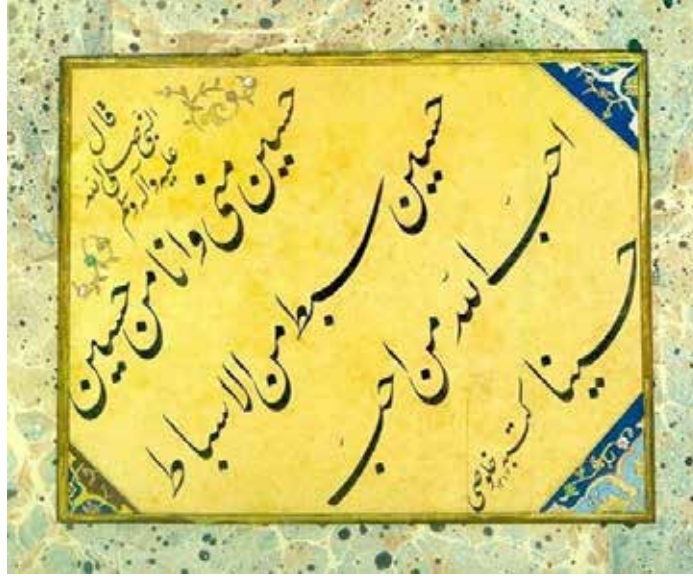 قال
النبی صلی الله
علیه وآله وسلم
حسین منی وانا من حسین
حسین سبط من الاسباط
احبّ الله من احبّ
حسینا
کتبه خلوصی